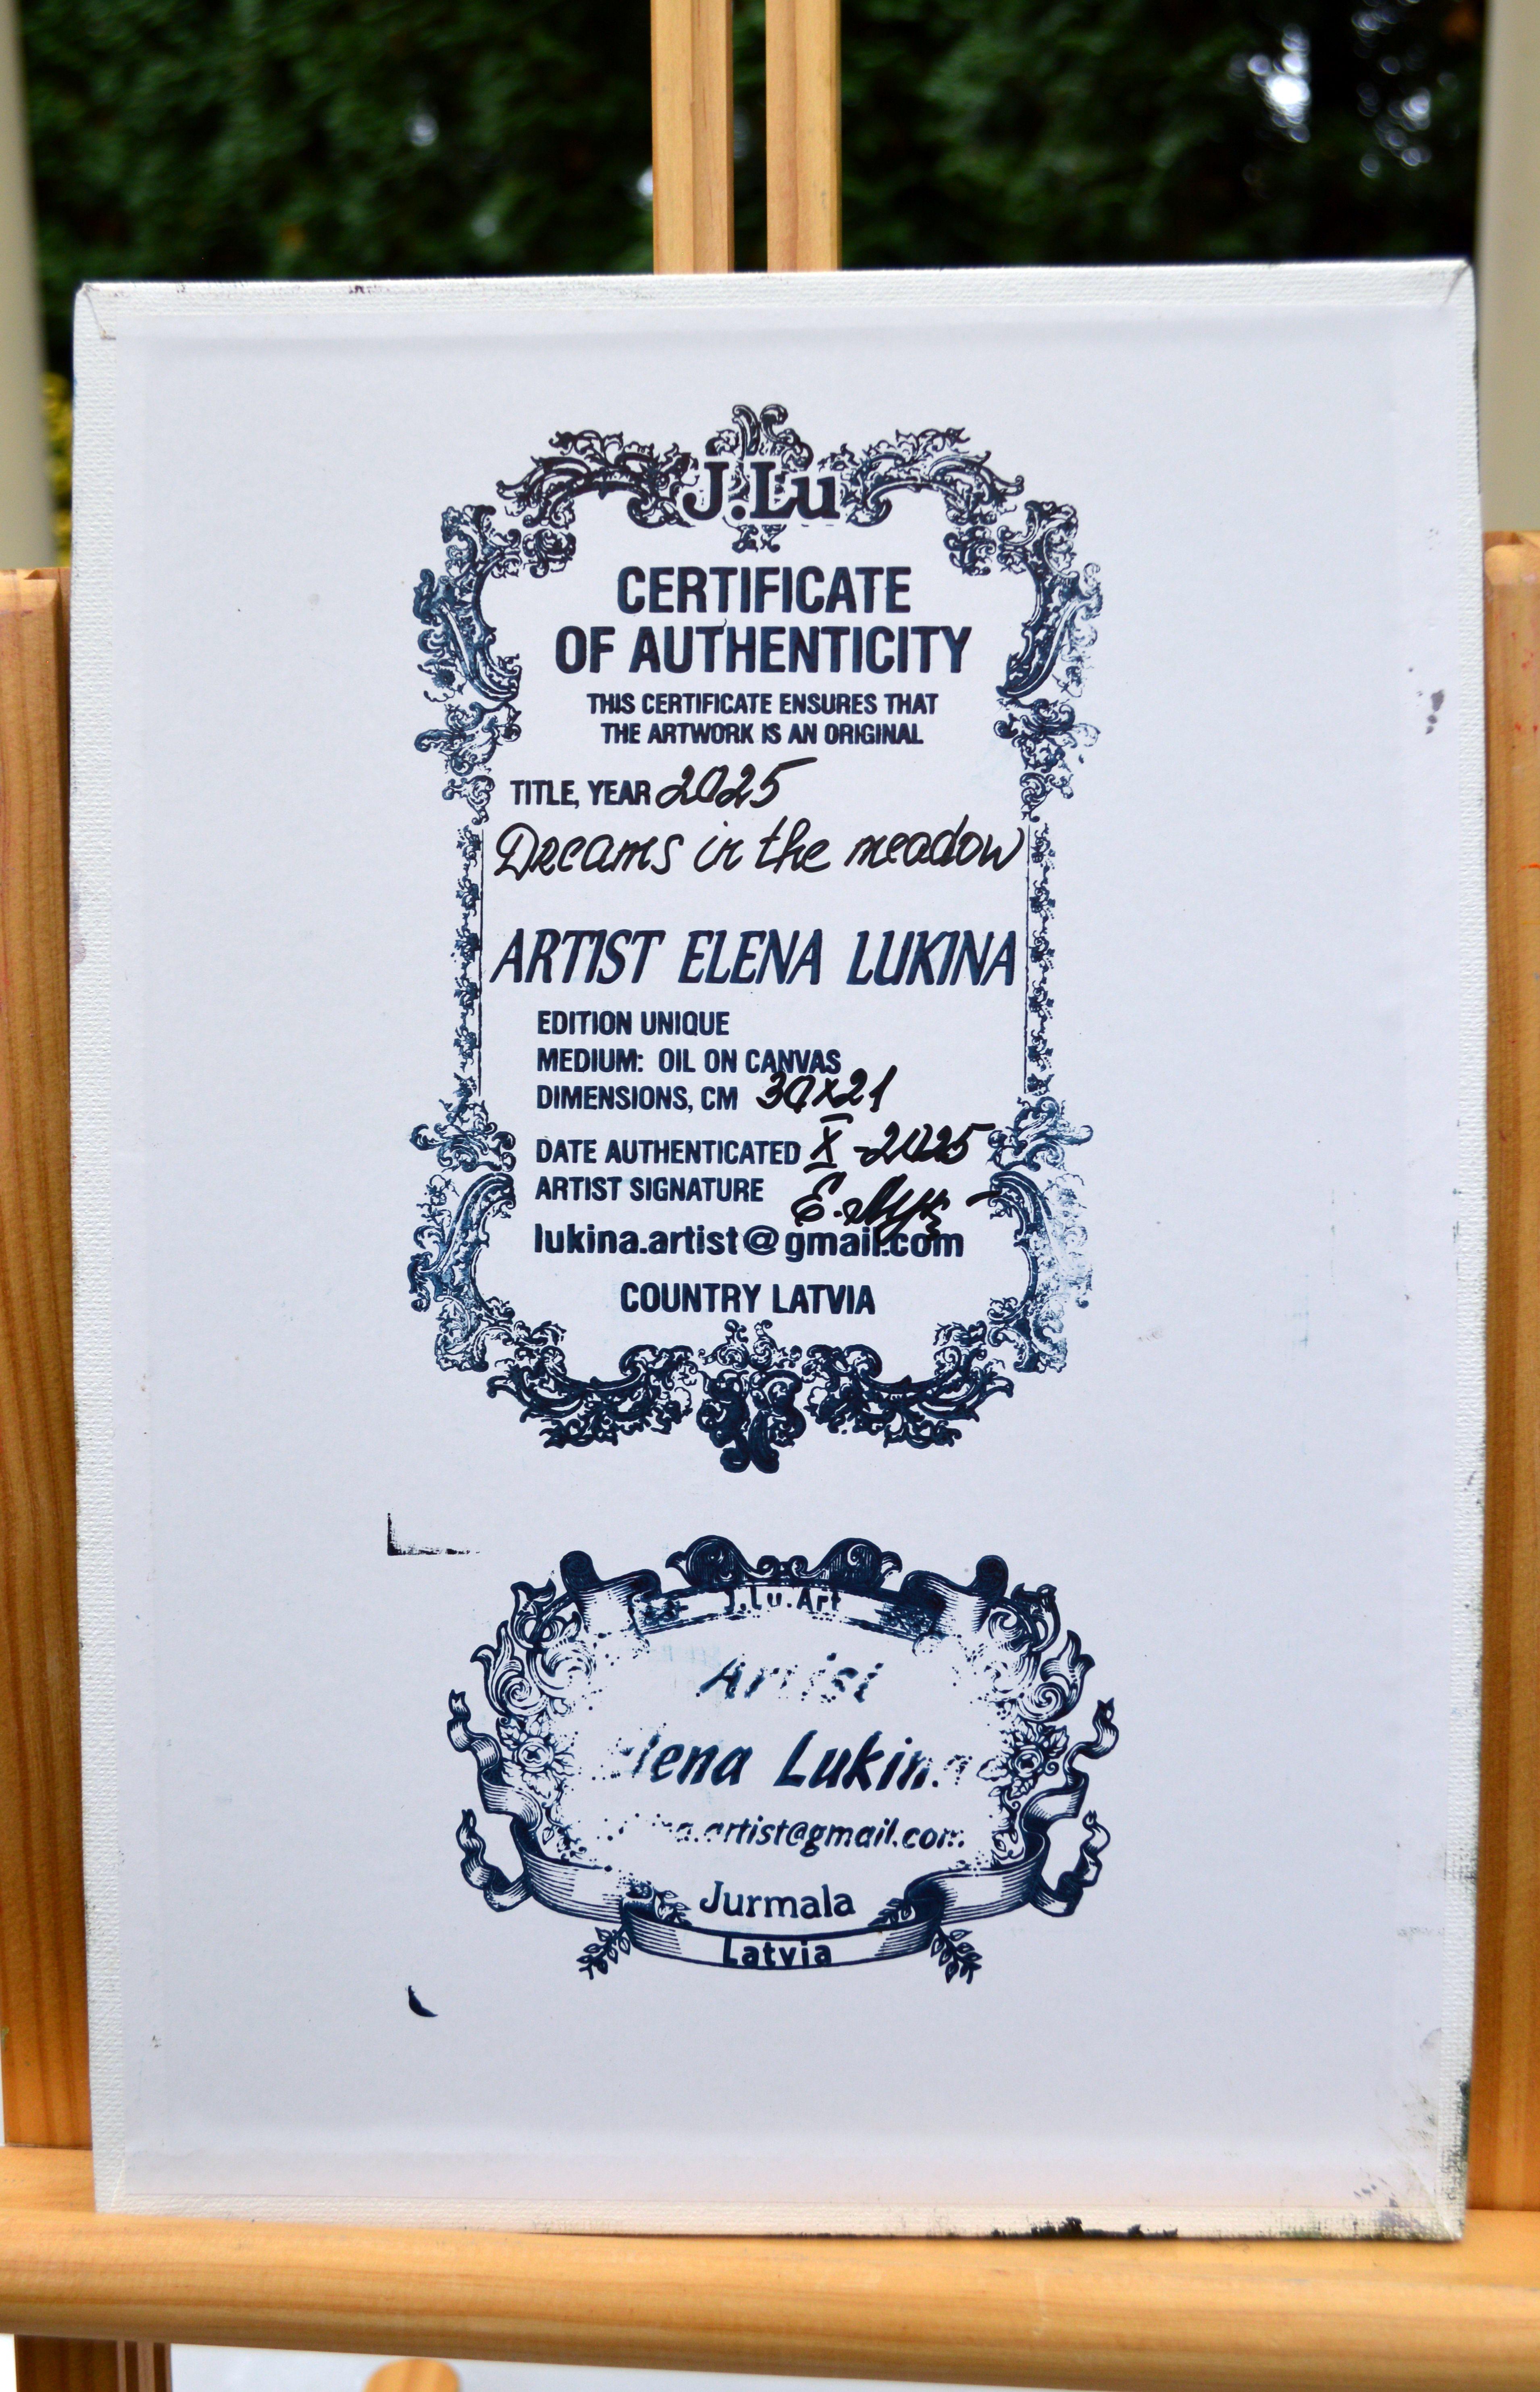 J.Lu
CERTIFICATE
OF AUTHENTICITY
THIS CERTIFICATE ENSURES THAT
THE ARTWORK IS AN ORIGINAL
TITLE, YEAR 2025
Dreams in the meadow
ARTIST ELENA LUKINA
EDITION UNIQUE
MEDIUM: OIL ON CANVAS
DIMENSIONS, CM 30x21
DATE AUTHENTICATED X-2025
ARTIST SIGNATURE
lukina.artist@gmail.com
COUNTRY LATVIA
J.Lu.Art
Artist
Elena Lukina
lukina.artist@gmail.com
Jurmala
Latvia